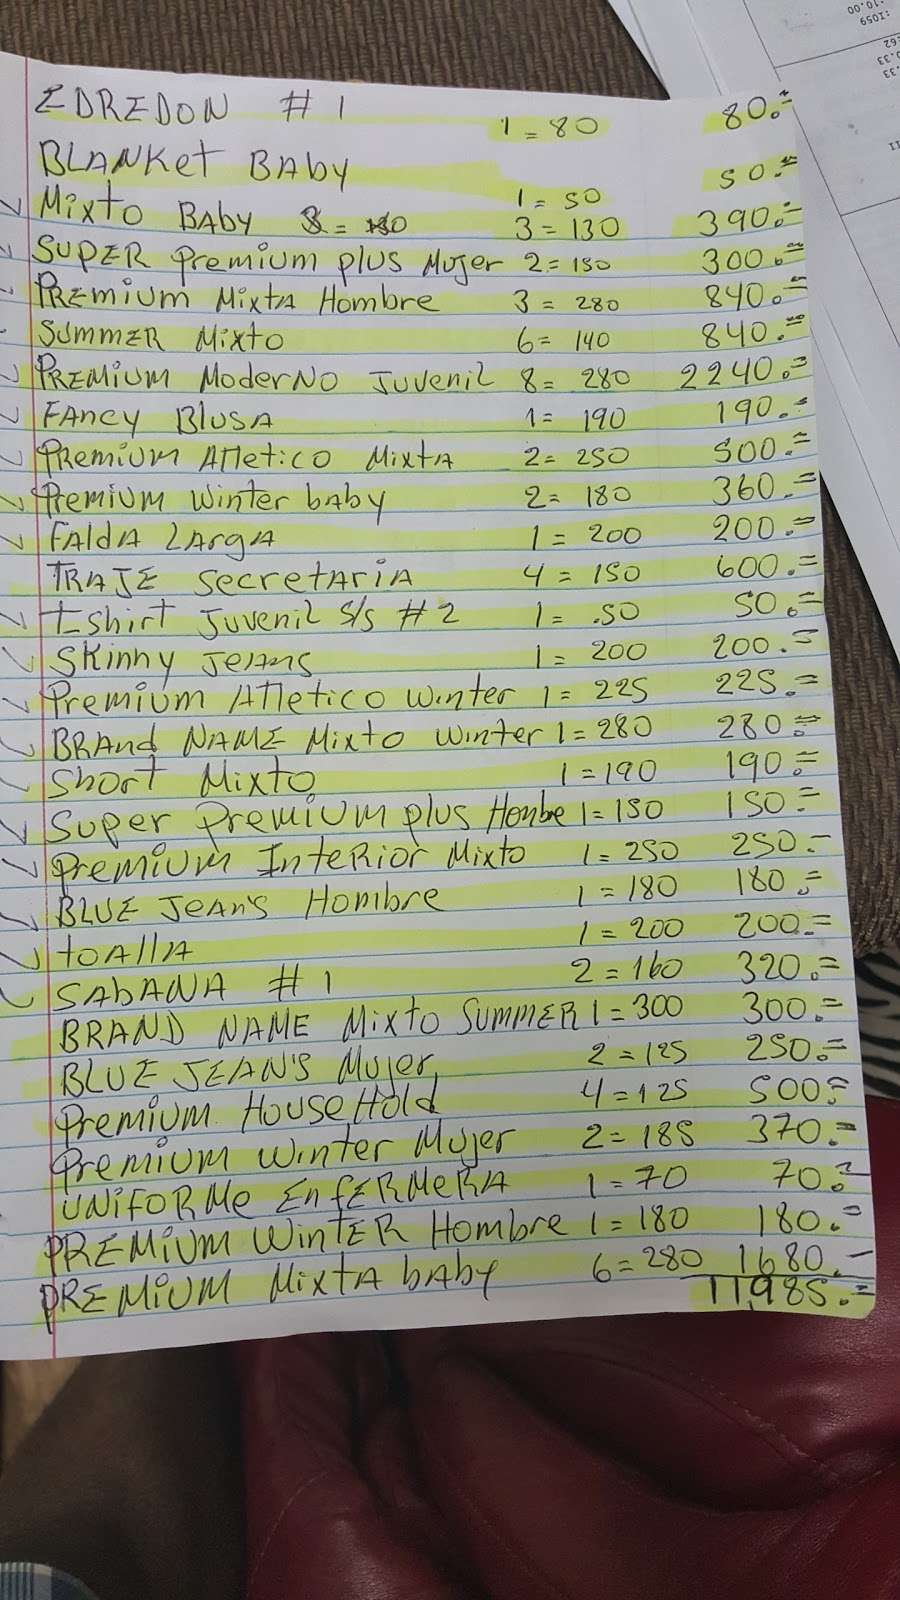 EDREDON #1 1=80 80.=
BLANKet BABy 1=50 50.=
Mixto BABy 3=130 390.=
SUPER premium plus Mujer 2=150 300.=
PREmium MixtA Hombre 3=280 840.=
SUMMER Mixto 6=140 840.=
PREMiUM ModerNO Juvenil 8=280 2240.=
FAncy BlusA 1=190 190.=
PRemiUM AtletiCO MixtA 2=250 500.=
Premium Winter baby 2=180 360.=
FAldA LArgA 1=200 200.=
TRAJE SecretariA 4=150 600.=
t-shirt Juvenil S/S #2 1=.50 50.=
SKinny JeAns 1=200 200.=
Premium Atletico winter 1=225 225.=
BRAnd NAME Mixto winter 1=280 280.=
Short Mixto 1=190 190.=
Super premium plus Honbe 1=150 150.=
premium InteRior Mixto 1=250 250.=
BLUE JeAn's Hombre 1=180 180.=
toAllA 1=200 200.=
SAbANA #1 2=160 320.=
BRAND NAME Mixto SUMMER 1=300 300.=
BLUE JEAN'S Mujer 2=125 250.=
Premium HouseHold 4=125 500.=
Premium Winter Mujer 2=185 370.=
UNiFORMe EnfERMeRA 1=70 70.=
PREMiUM WintER Hombre 1=180 180.=
PREMiUM MixtA bAby 6=280 1680.=
11,985.=